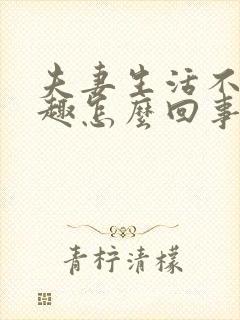 夫妻生活不
趣怎麼回事
青柠清檬